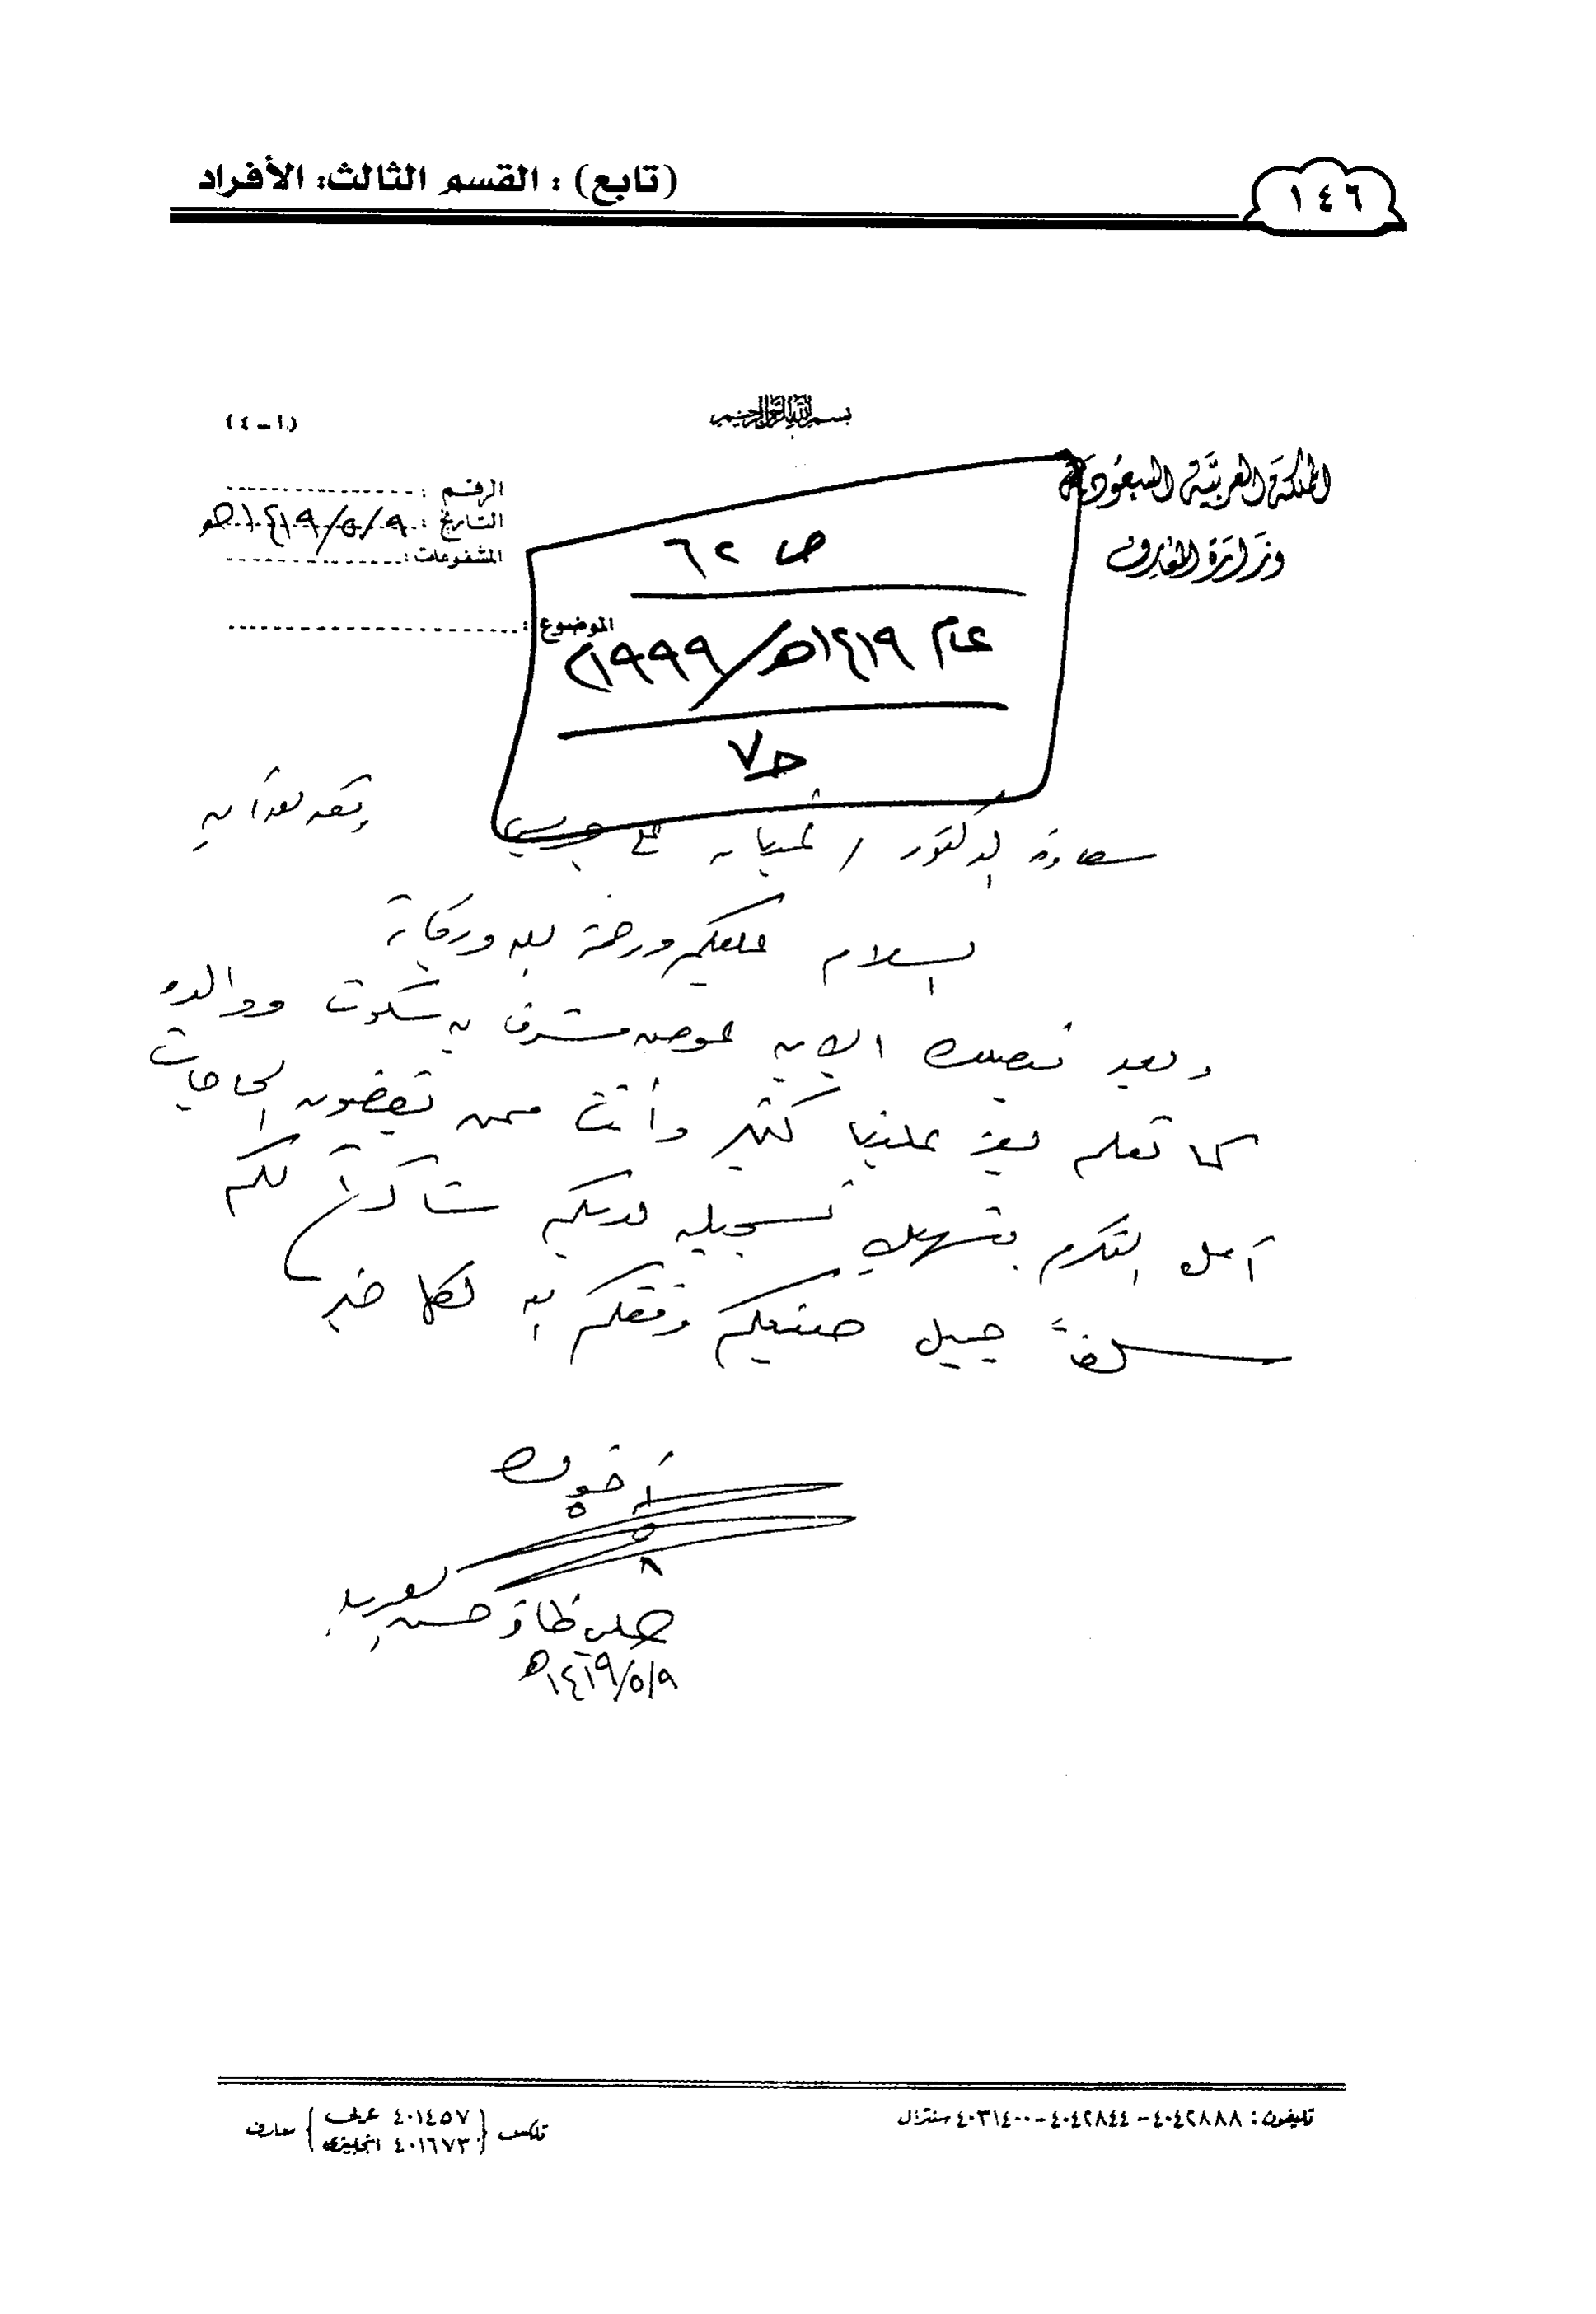 ١٤٦
(تابع) : القسم الثالث: الأفراد
بسم الله الرحمن الرحيم
(١-٤)
المملكة العربية السعودية
وزارة المعارف
الرقم :
التاريخ : ٩/٥/١٤١٩هـ
المشفوعات :
الموضوع :
ص ٦٢
عام ١٤١٩هـ/١٩٩٩م
ح٧
سعادة الدكتور /
السلام عليكم ورحمة الله وبركاته
وبعد الابن عوض مشرف بن ووالده
كما تعلم علينا كثير وأنت ممن تقضون الحاجات
آمل التكرم بتسهيل تسجيله لديكم شاكراً لكم
سلفاً جميل صنيعكم وفقكم الله لكل خير
أخوك
علي ظافر حسن
٩/٥/١٤١٩هـ
تليفون : ٤٠٤٢٨٨٨ - ٤٠٤٢٨٤٤ - ٤٠٣١٤٠٠ سنترال
تلكس ٤٠١٤٥٧ عربي
٤٠١٦٧٣ انجليزي
معارف